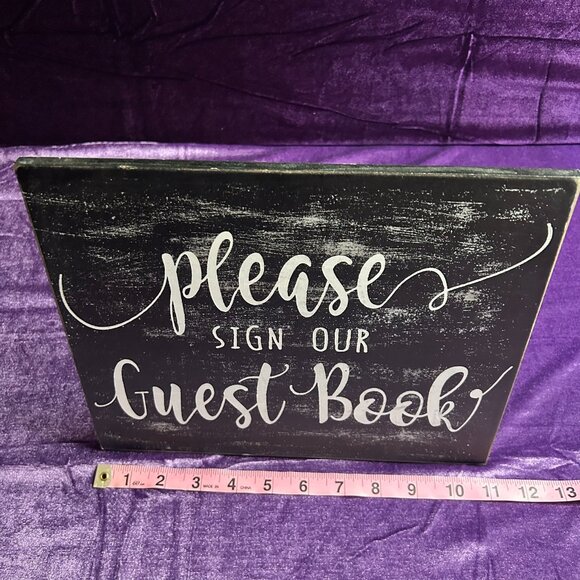 please
SIGN OUR
Guest Book
1 2 3 MADE IN 4 CHINA 5 6 7 8 9 10 11 12 13